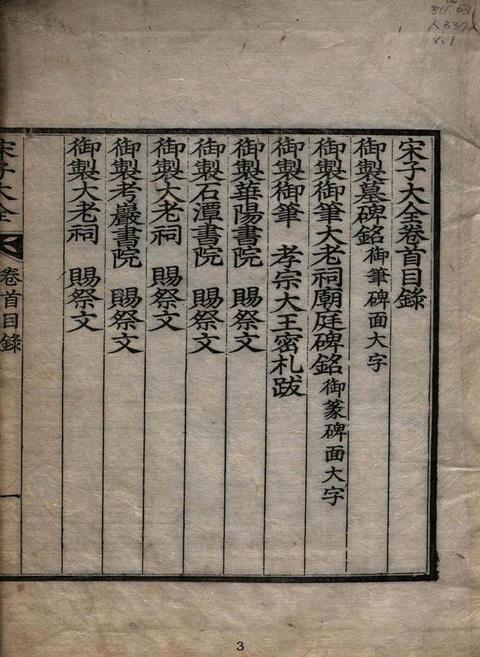 宋子大全卷首目錄
御製墓碑銘御筆碑面大字
御製御筆大老祠廟庭碑銘御篆碑面大字
御製御筆 孝宗大王密札跋
御製華陽書院 賜祭文
御製石潭書院 賜祭文
御製大老祠 賜祭文
御製考巖書院 賜祭文
御製大老祠 賜祭文
宋子大全 卷首目錄 一
3